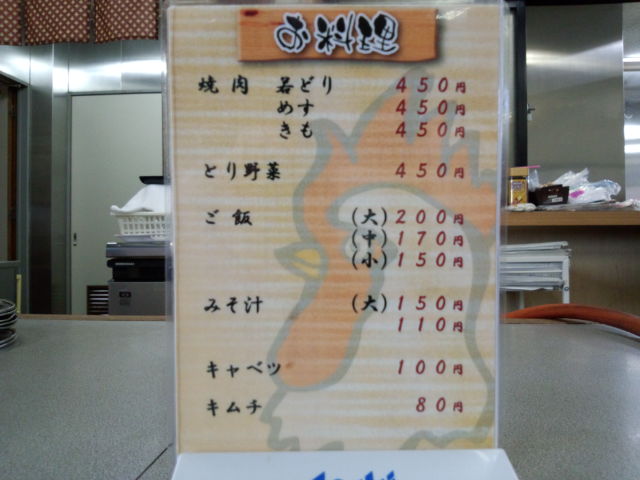 お料理
焼肉 若どり 450円
めす 450円
きも 450円
とり野菜 450円
ご飯 (大) 200円
(中) 170円
(小) 150円
みそ汁 (大) 150円
110円
キャベツ 100円
キムチ 80円